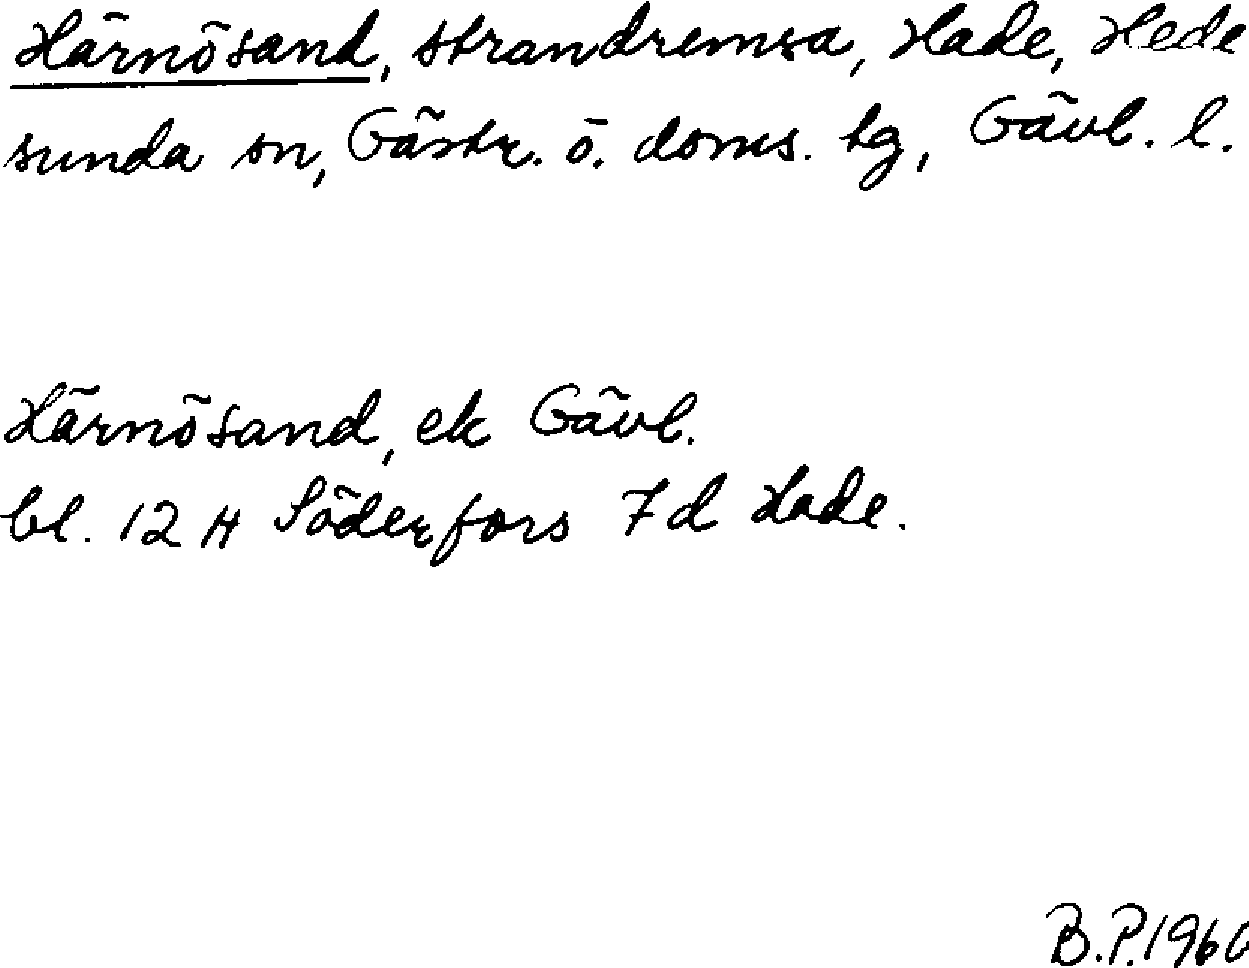 Härnösand, strandremsa, Hade, Hede
sunda sn, Gästr. ö. doms. tg, Gävl. l.
Härnösand, ek Gävl.
bl. 12 H Söderfors 7d Hade.
B.P. 1960